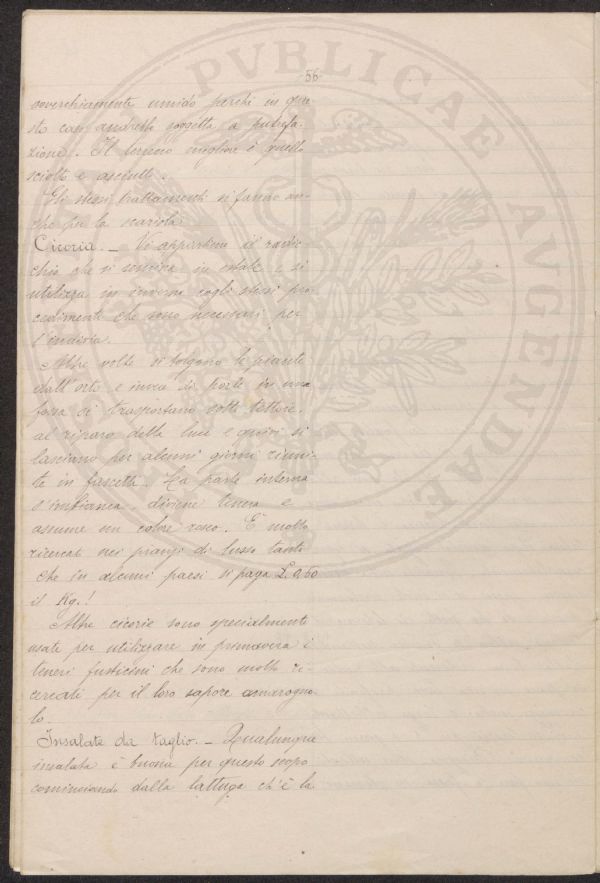 56
soverchiamente umido perchè in que
sto caso andrebbe soggetta a putrefa-
zione. Il terreno migliore è quello
sciolto e asciutto.
Gli stessi trattamenti si fanno an-
che per la scariola.
Cicoria. _ Vi appartiene il radic-
chio che si semina in estate e si
utilizza in inverno cogli stessi pro
cedimenti che sono necessari per
l'indivia.
Altre volte si tolgono le piante
dall'orto e invece di porle in una
fossa si trasportano sotto tettoie,
al riparo della luce e quivi si
lasciano per alcuni giorni riuni-
te in fascetti. La parte interna
s'imbianca, diviene tenera e
assume un colore roseo. È molto
ricercato nei pranzi di lusso tanto
che in alcuni paesi si paga L. 0,60
il Kg.!
Altre cicorie sono specialmente
usate per utilizzare in primavera i
teneri fusticini che sono molto ri-
cercati per il loro sapore amarogno-
lo.
Insalate da taglio. _ Qualunque
insalata è buona per questo scopo
cominciando dalla lattuga ch'è la
PVBLICAE
AVGENDAE